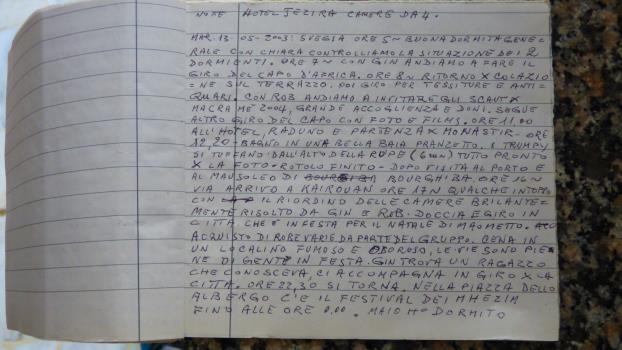 NOTE HOTEL JEZIRA CAMERE DA 4.
MAR. 13-05-2003: SVEGLIA ORE 5~ BUONA DORMITA GENE
RALE CON CHIARA CONTROLLIAMO LA SITUAZIONE DEI 2
DORMIENTI. ORE 7~ CON GIN ANDIAMO A FARE IL
GIRO DEL CAPO D'AFRICA. ORE 8~ RITORNO X COLAZIO
=NE SUL TERRAZZO. POI GIRO PER TESSITURE E ANTI=
QUARI. CON ROB ANDIAMO A INVITARE GLI SCAUT X
MACRAME 2004, GRANDE ACCOGLIENZA E DONI. SEGUE
ALTRO GIRO DEL CAPO CON FOTO E FILMS. ORE 11,00
ALL'HOTEL, RADUNO E PARTENZA X MONASTIR- ORE
12,20- BAGNO IN UNA BELLA BAIA PRANZETTO. I TRUMPY
SI TUFFANO DALL'ALTO DELLA RUPE (6 mm) TUTTO PRONTO
X LA FOTO- ROTOLO FINITO- DOPO VISITA AL PORTO E
AL MAUSOLEO DI A BOURGHIBA. ORE 16~
VIA ARRIVO A KAIROUAN ORE 17~ QUALCHE INTOPPO
CON IL RIORDINO DELLE CAMERE BRILANTE=
MENTE RISOLTO DA GIN E ROB. DOCCIA E GIRO IN
CITTA CHE E' IN FESTA PER IL NATALE DI MAOMETTO.
ACQUISTO DI ROBE VARIE DA PARTE DEL GRUPPO. CENA IN
UN LOCALINO FUMOSO E ODOROSO, LE VIE SONO PIE
NE DI GENTE IN FESTA. GIN TROVA UN RAGAZZO
CHE CONOSCEVA, CI ACCOMPAGNA IN GIRO X LA
CITTA. ORE 22,30 SI TORNA. NELLA PIAZZA DELLO
ALBERGO C'E IL FESTIVAL DEI
FINO ALLE ORE 0.00. MA IO HO DORMITO